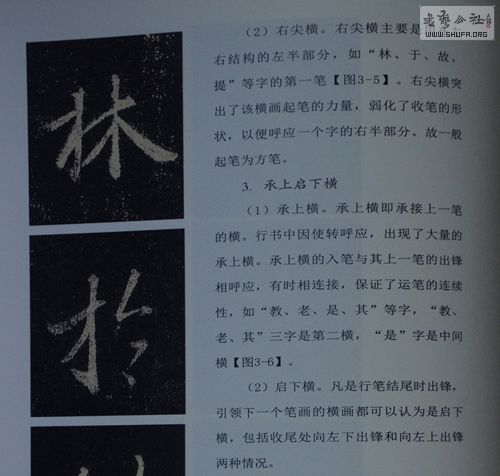 （2）右尖横。右尖横主要是
右结构的左半部分，如“林、于、故、
提”等字的第一笔【图3-5】。右尖横突
出了该横画起笔的力量，弱化了收笔的形
状，以便呼应一个字的右半部分。故一般
起笔为方笔。
3. 承上启下横
（1）承上横。承上横即承接上一笔
的横。行书中因使转呼应，出现了大量的
承上横。承上横的入笔与其上一笔的出锋
相呼应，有时相连接，保证了运笔的连续
性，如“教、老、是、其”等字，“教、
老、其”三字是第二横，“是”字是中间
横【图3-6】。
（2）启下横。凡是行笔结尾时出锋，
引领下一个笔画的横画都可以认为是启下
横，包括收尾处向左下出锋和向左上出锋
两种情况。
林
於
WWW.SHUFA.ORG